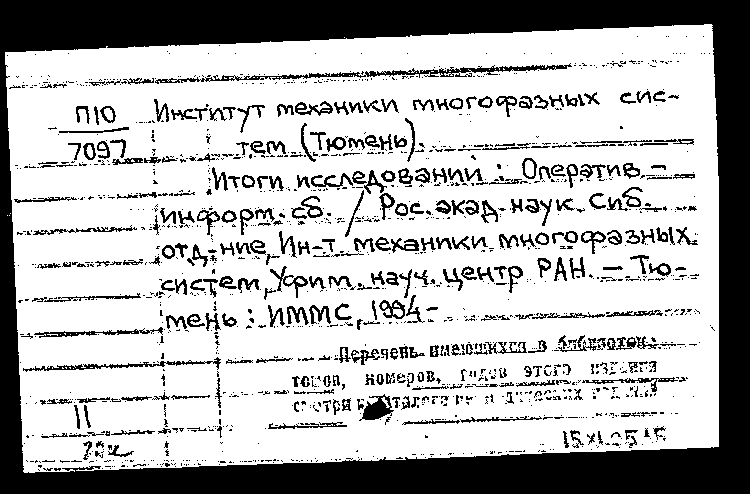 П10 Институт механики многофазных сис-
7097 тем (Тюмень).
Итоги исследований: Оператив.-
информ. сб. / Рос. акад. наук. Сиб.
отд-ние, Ин-т механики многофазных
систем, Уфим. науч. центр РАН. – Тю-
мень: ИММС, 1994-
Перечень имеющихся в библиотеке
томов, номеров, годов этого издания
смотри
II